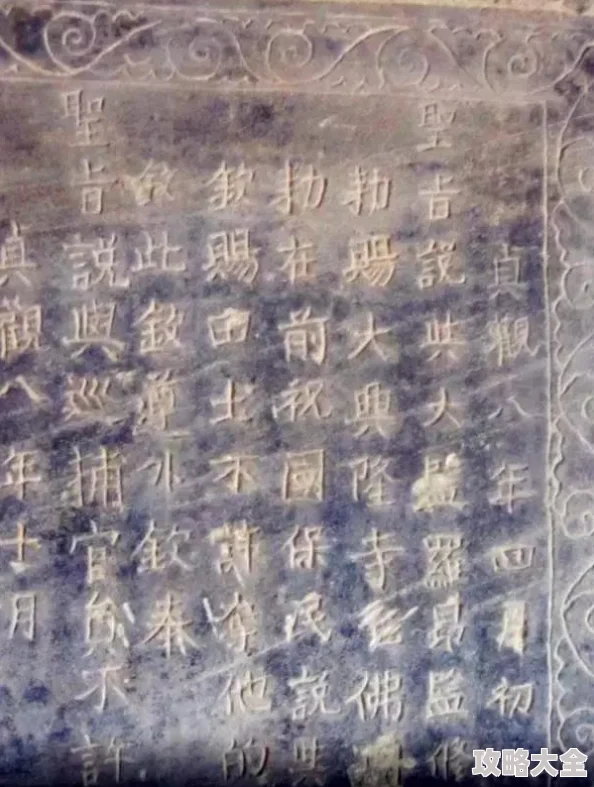 貞觀八年四月初
聖旨說與大監羅昂監修
勑賜大興隆寺佛
勑在前祝國保民說與
欽賜田土不許他的
欽此欽遵外欽奉
聖旨說與巡捕官員不許
貞觀八年十月
攻略大全